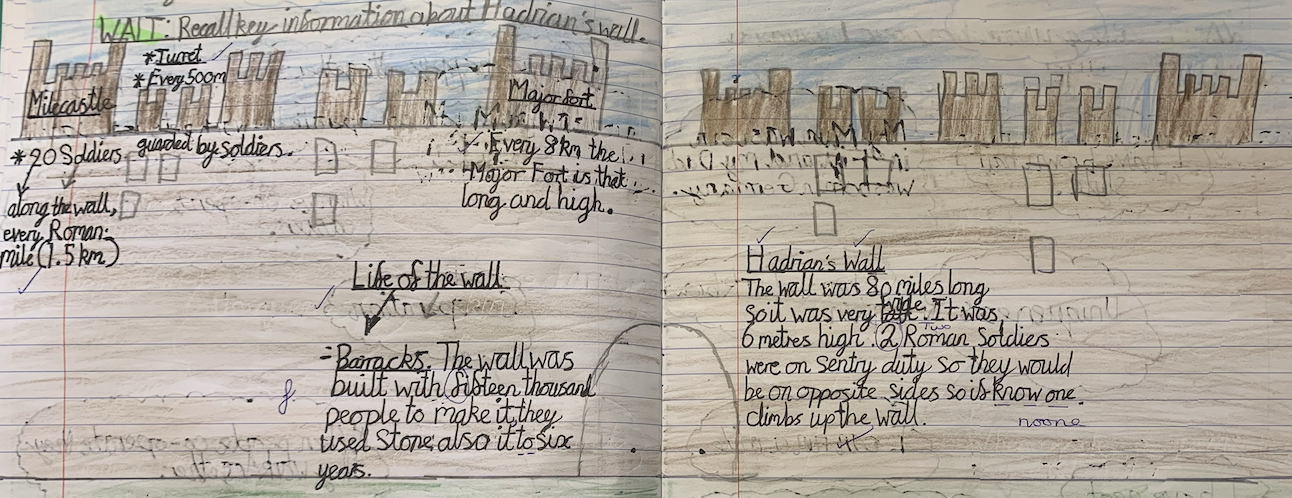 WALT: Recall key information about Hadrian's wall.
*Turret
*Every 500m
guarded by soldiers.
Milecastle
*20 Soldiers
along the wall,
every Roman
mile (1.5 km)
Major fort
Every 8km the
Major Fort is that
long and high.
Life of the wall
- Barracks. The wall was
built with fifteen thousand
f
people to make it, they
used Stone also it to six
years.
Hadrian's Wall
The wall was 80 miles long
so it was very. It was
6 metres high. (2) Roman Soldiers
Two
were on sentry duty so they would
be on opposite sides so if know one
noone
climbs up the wall.